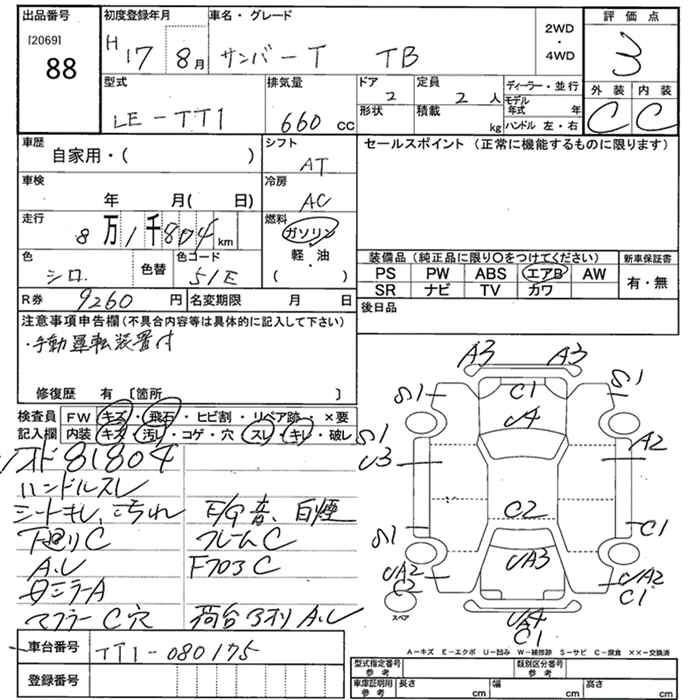 出品番号
[2069]
88
初度登録年月
H 17 8月
車名・グレード
サンバーT TB
2WD
・
4WD
評価点
3
型式
LE-TT1
排気量
660 cc
ドア
2
定員
2 人
形状
積載
kg
ディーラー・並行
モデル年式 年
ハンドル 左・右
外装
内装
C C
車歴
自家用・( )
シフト
AT
セールスポイント (正常に機能するものに限ります)
車検
年 月( 日)
冷房
AC
走行
8万1千804 km
燃料
ガソリン
軽・油
( )
色
シロ
色替
色コード
51E
装備品 (純正品に限り〇をつけてください)
新車保証書
PS PW ABS エアB AW
SR ナビ TV カワ
有・無
R券
9260 円
名変期限 月 日
後日品
注意事項申告欄 (不具合内容等は具体的に記入して下さい)
・手動運転装置付
修復歴 有 〔箇所 〕
検査員
記入欄
FW キズ・飛石・ヒビ割・リペア跡・×要
内装 キズ・汚レ・コゲ・穴・スレ・キレ・破レ
ソオド81804
ハンドルスレ
シートキレ、汚れ
下回りC
A.L
Mミラー A
マフラー C穴
E/G音、白煙
フレームC
Fフロア C
荷台アオリ A.U
A3 A3
S1 C1 S1
U4
S1
U3 A2
C2
S1 C1
UA3
UA2 C2
UA2 C1
UA C1
スペア
A-キズ E-エクボ U-凹み W-補修跡 S-サビ C-腐食 ××-交換済
車台番号
TT1-080175
登録番号
型式指定番号
参考
類別区分番号
参考
車庫証明用
参考
長さ cm
幅 cm
高さ cm